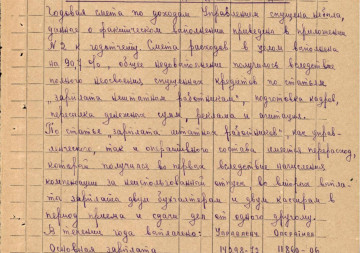 Годовая смета по доходам Управлением спущена не была,
данные о фактическом выполнении приведено в приложении
№2 к годотчету. Смета расходов в целом выполнена
на 90,7%, общее недовыполнение получилось вследствие
полного неосвоения спущенных кредитов по статьям
„зарплата нештатным работникам", подготовка кадров,
пересылка ценных сумм, реклама и агитация.
По статье „зарплата штатных работников", как управ-
ленческого, так и операт. состава имеется перерасход,
который получился во первых вследствие начисления
компенсации за неиспользованный отпуск во вторых выпла-
та зарплаты двум бухгалтерам и двум кассирам в
период приема и сдачи дел от одного другому.
В течении года выплачено:
Основная зарплата